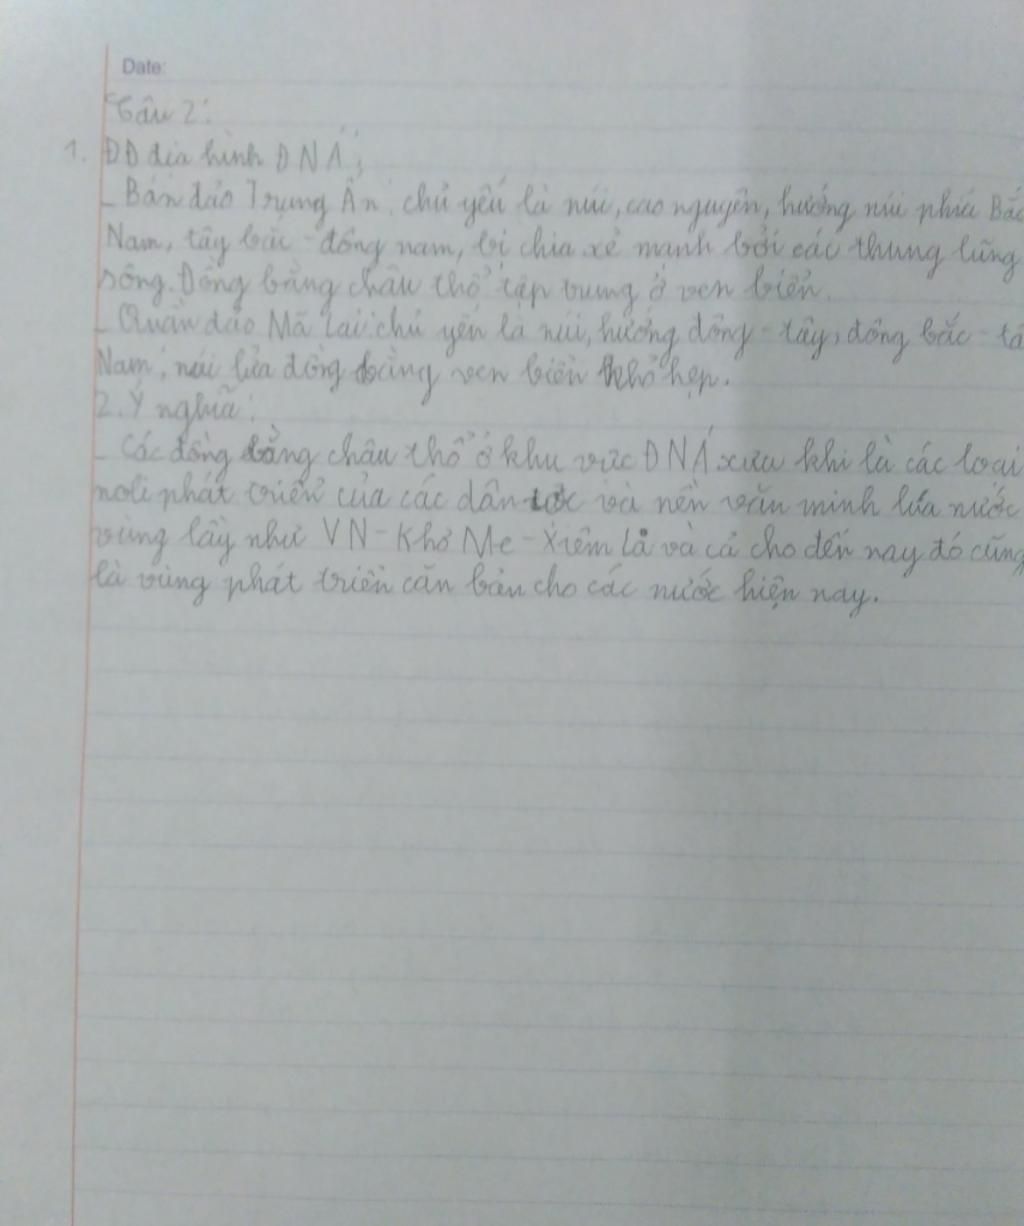 Date:
Câu 2:
1. ĐĐ địa hình ĐNÁ:
- Bán đảo Trung Ấn: chủ yếu là núi, cao nguyên, hướng núi phía Bắc
Nam, tây bắc - đông nam, bị chia xẻ mạnh bởi các thung lũng
sông. Đồng bằng châu thổ tập trung ở ven biển.
- Quần đảo Mã Lai: chủ yếu là núi, hướng đông - tây, đông bắc - tâ
Nam, núi lửa đồng bằng ven biển nhỏ hẹp.
2. Ý nghĩa:
- Các đồng bằng châu thổ ở khu vực ĐNÁ xưa khi là các loại
nơi phát triển của các dân tộc và nền văn minh lúa nước
vùng lầy như VN - Khơ Me - Xiêm Lả và cả cho đến nay đó cũng
là vùng phát triển căn bản cho các nước hiện nay.